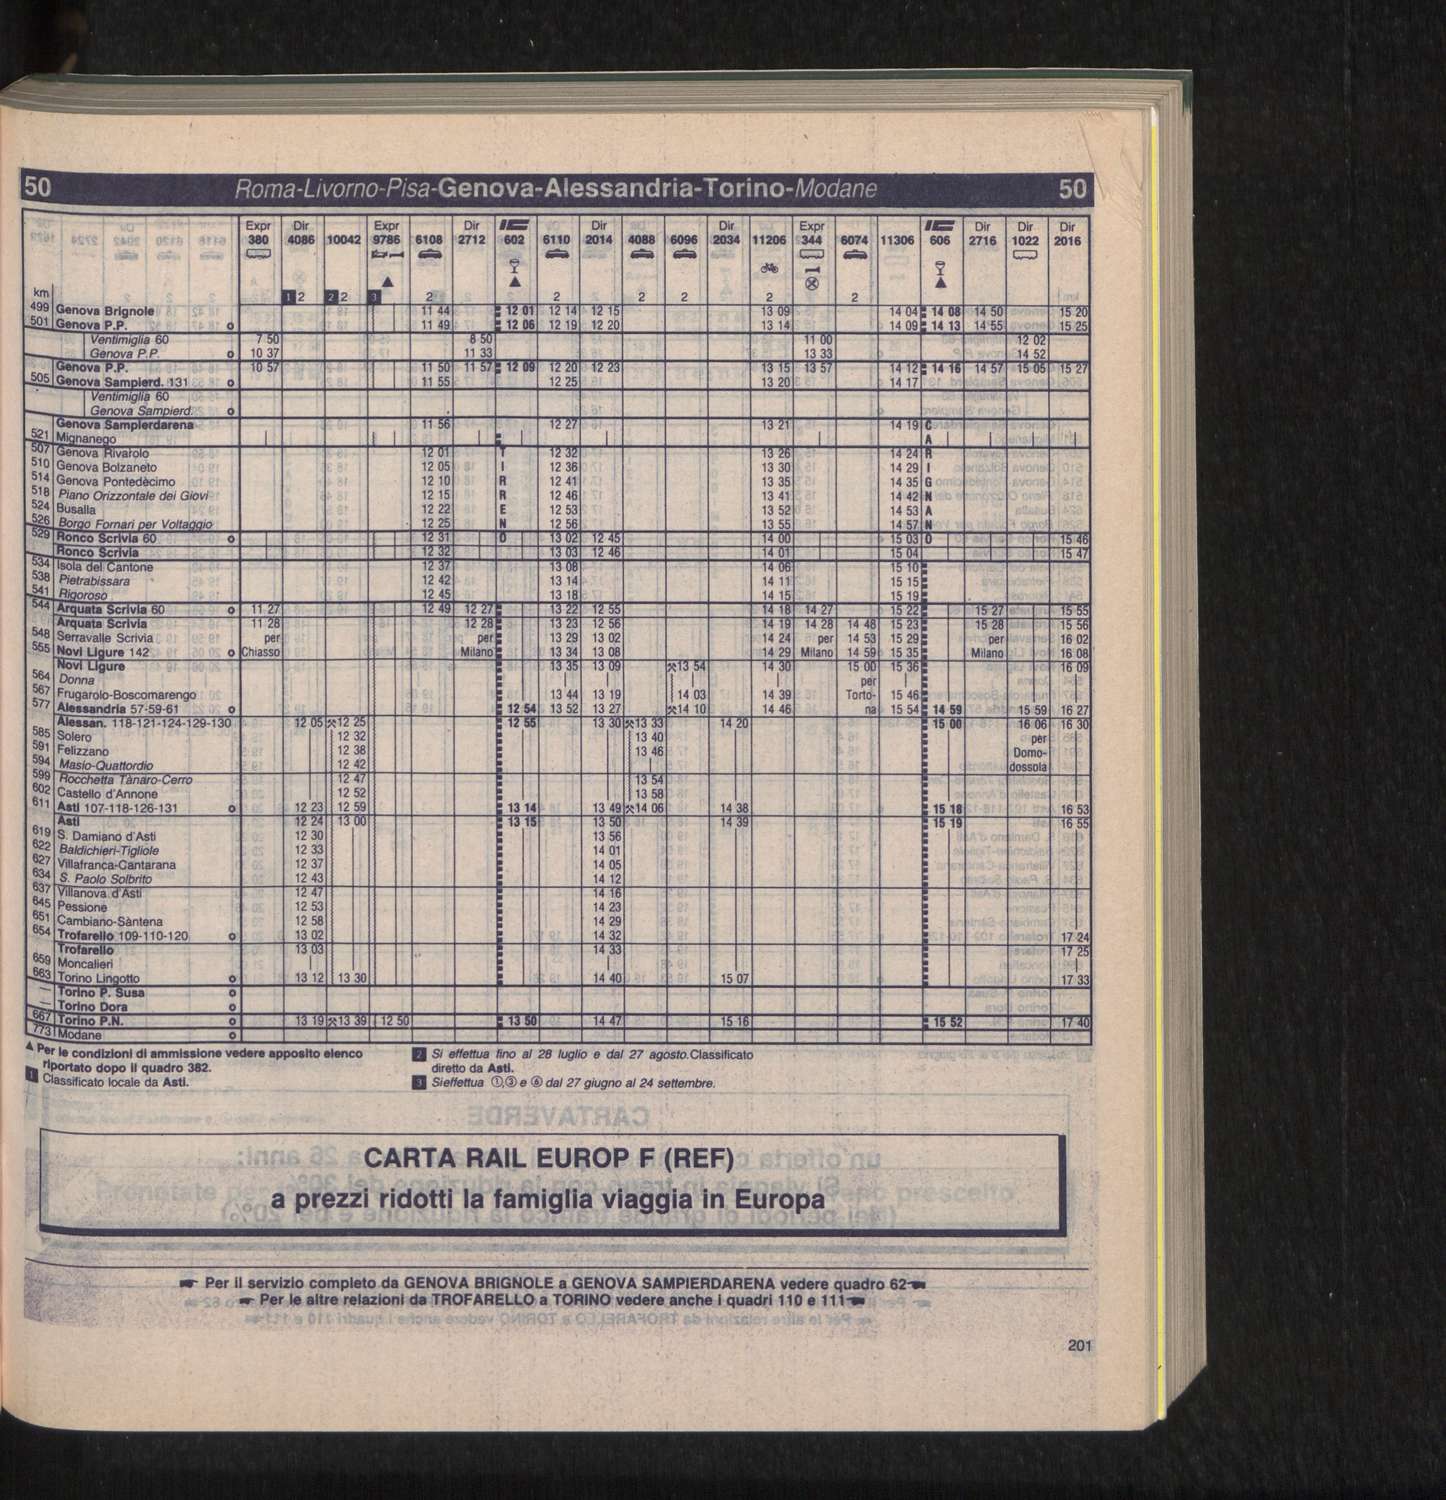 50 Roma-Livorno-Pisa-Genova-Alessandria-Torino-Modane 50
Expr Dir Expr Dir IC Dir Dir Expr IC Dir Dir Dir
380 4086 10042 9786 6108 2712 602 6110 2014 4088 6096 2034 11206 344 6074 11306 606 2716 1022 2016
km 1 2 2 2 3 2 2 2 2 2 2
499 Genova Brignole 11 44 12 01 12 14 12 15 13 09 14 04 14 08 14 50 15 20
501 Genova P.P. o 11 49 12 06 12 19 12 20 13 14 14 09 14 13 14 55 15 25
Ventimiglia 60 7 50 8 50 11 00 12 02
Genova P.P. o 10 37 11 33 13 33 14 52
Genova P.P. 10 57 11 50 11 57 12 09 12 20 12 23 13 15 13 57 14 12 14 16 14 57 15 05 15 27
505 Genova Sampierd. 131 o 11 55 12 25 13 20 14 17
Ventimiglia 60
Genova Sampierd. o
Genova Sampierdarena 11 56 12 27 13 21 14 19 C
521 Mignanego A
507 Genova Rivarolo 12 01 T 12 32 13 26 14 24 R
510 Genova Bolzaneto 12 05 I 12 36 13 30 14 29 I
514 Genova Pontedècimo 12 10 R 12 41 13 35 14 35 G
518 Piano Orizzontale dei Giovi 12 15 R 12 46 13 41 14 42 N
524 Busalla 12 22 E 12 53 13 52 14 53 A
526 Borgo Fornari per Voltaggio 12 25 N 12 56 13 55 14 57 N
529 Ronco Scrivia 60 o 12 31 O 13 02 12 45 14 00 15 03 O 15 46
Ronco Scrivia 12 32 13 03 12 46 14 01 15 04 15 47
534 Isola del Cantone 12 37 13 08 14 06 15 10
538 Pietrabissara 12 42 13 14 14 11 15 15
541 Rigoroso 12 45 13 18 14 15 15 19
544 Arquata Scrivia 60 o 11 27 12 49 12 27 13 22 12 55 14 18 14 27 15 22 15 27 15 55
Arquata Scrivia 11 28 12 28 13 23 12 56 14 19 14 28 14 48 15 23 15 28 15 56
548 Serravalle Scrivia per per 13 29 13 02 14 24 per 14 53 15 29 per 16 02
555 Novi Ligure 142 o Chiasso Milano 13 34 13 08 14 29 Milano 14 59 15 35 Milano 16 08
Novi Ligure 13 35 13 09 13 54 14 30 15 00 15 36 16 09
564 Donna per
567 Frugarolo-Boscomarengo 13 44 13 19 14 03 14 39 Torto- 15 46
577 Alessandria 57-59-61 o 12 54 13 52 13 27 14 10 14 46 na 15 54 14 59 15 59 16 27
Alessan. 118-121-124-129-130 12 05 12 25 12 55 13 30 13 33 14 20 15 00 16 06 16 30
585 Solero 12 32 13 40 per
591 Felizzano 12 38 13 46 Domo-
594 Masio-Quattordio 12 42 dossola
599 Rocchetta Tànaro-Cerro 12 47 13 54
602 Castello d'Annone 12 52 13 58
611 Asti 107-118-126-131 o 12 23 12 59 13 14 13 49 14 06 14 38 15 18 16 53
Asti 12 24 13 00 13 15 13 50 14 39 15 19 16 55
619 S. Damiano d'Asti 12 30 13 56
622 Baldichieri-Tigliole 12 33 14 01
627 Villafranca-Cantarana 12 37 14 05
634 S. Paolo Solbrito 12 43 14 12
637 Villanova d'Asti 12 47 14 16
645 Pessione 12 53 14 23
651 Cambiano-Sàntena 12 58 14 29
654 Trofarello 109-110-120 o 13 02 14 32 17 24
Trofarello 13 03 14 33 17 25
659 Moncalieri
663 Torino Lingotto o 13 12 13 30 14 40 15 07 17 33
— Torino P. Susa o
— Torino Dora o
667 Torino P.N. o 13 19 13 39 12 50 13 50 14 47 15 16 15 52 17 40
773 Modane o
▲ Per le condizioni di ammissione vedere apposito elenco
riportato dopo il quadro 382.
1 Classificato locale da Asti.
2 Si effettua fino al 28 luglio e dal 27 agosto. Classificato
diretto da Asti.
3 Si effettua ①,③ e ⑥ dal 27 giugno al 24 settembre.
CARTA RAIL EUROP F (REF)
a prezzi ridotti la famiglia viaggia in Europa
Per il servizio completo da GENOVA BRIGNOLE a GENOVA SAMPIERDARENA vedere quadro 62
Per le altre relazioni da TROFARELLO a TORINO vedere anche i quadri 110 e 111
201